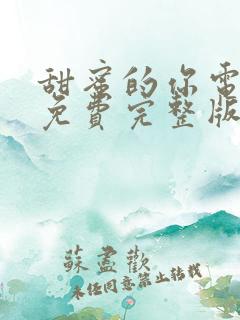 甜蜜的你電
免費完整版
蘇盡歡
未经同意禁止转载